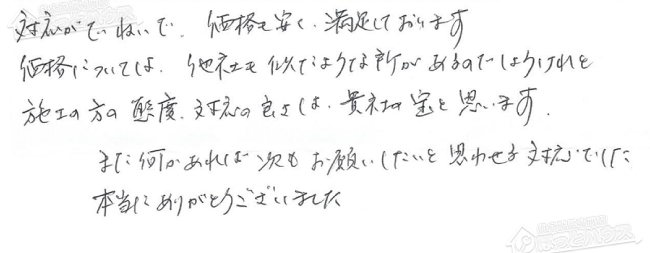 対応がていねいで、価格も安く、満足しております
価格については、他社も似たような所があるのでしょうけれど
施工の方の態度、対応の良さは、貴社の宝と思います。
また何かあれば次もお願いしたいと思わせる対応でした
本当にありがとうございました